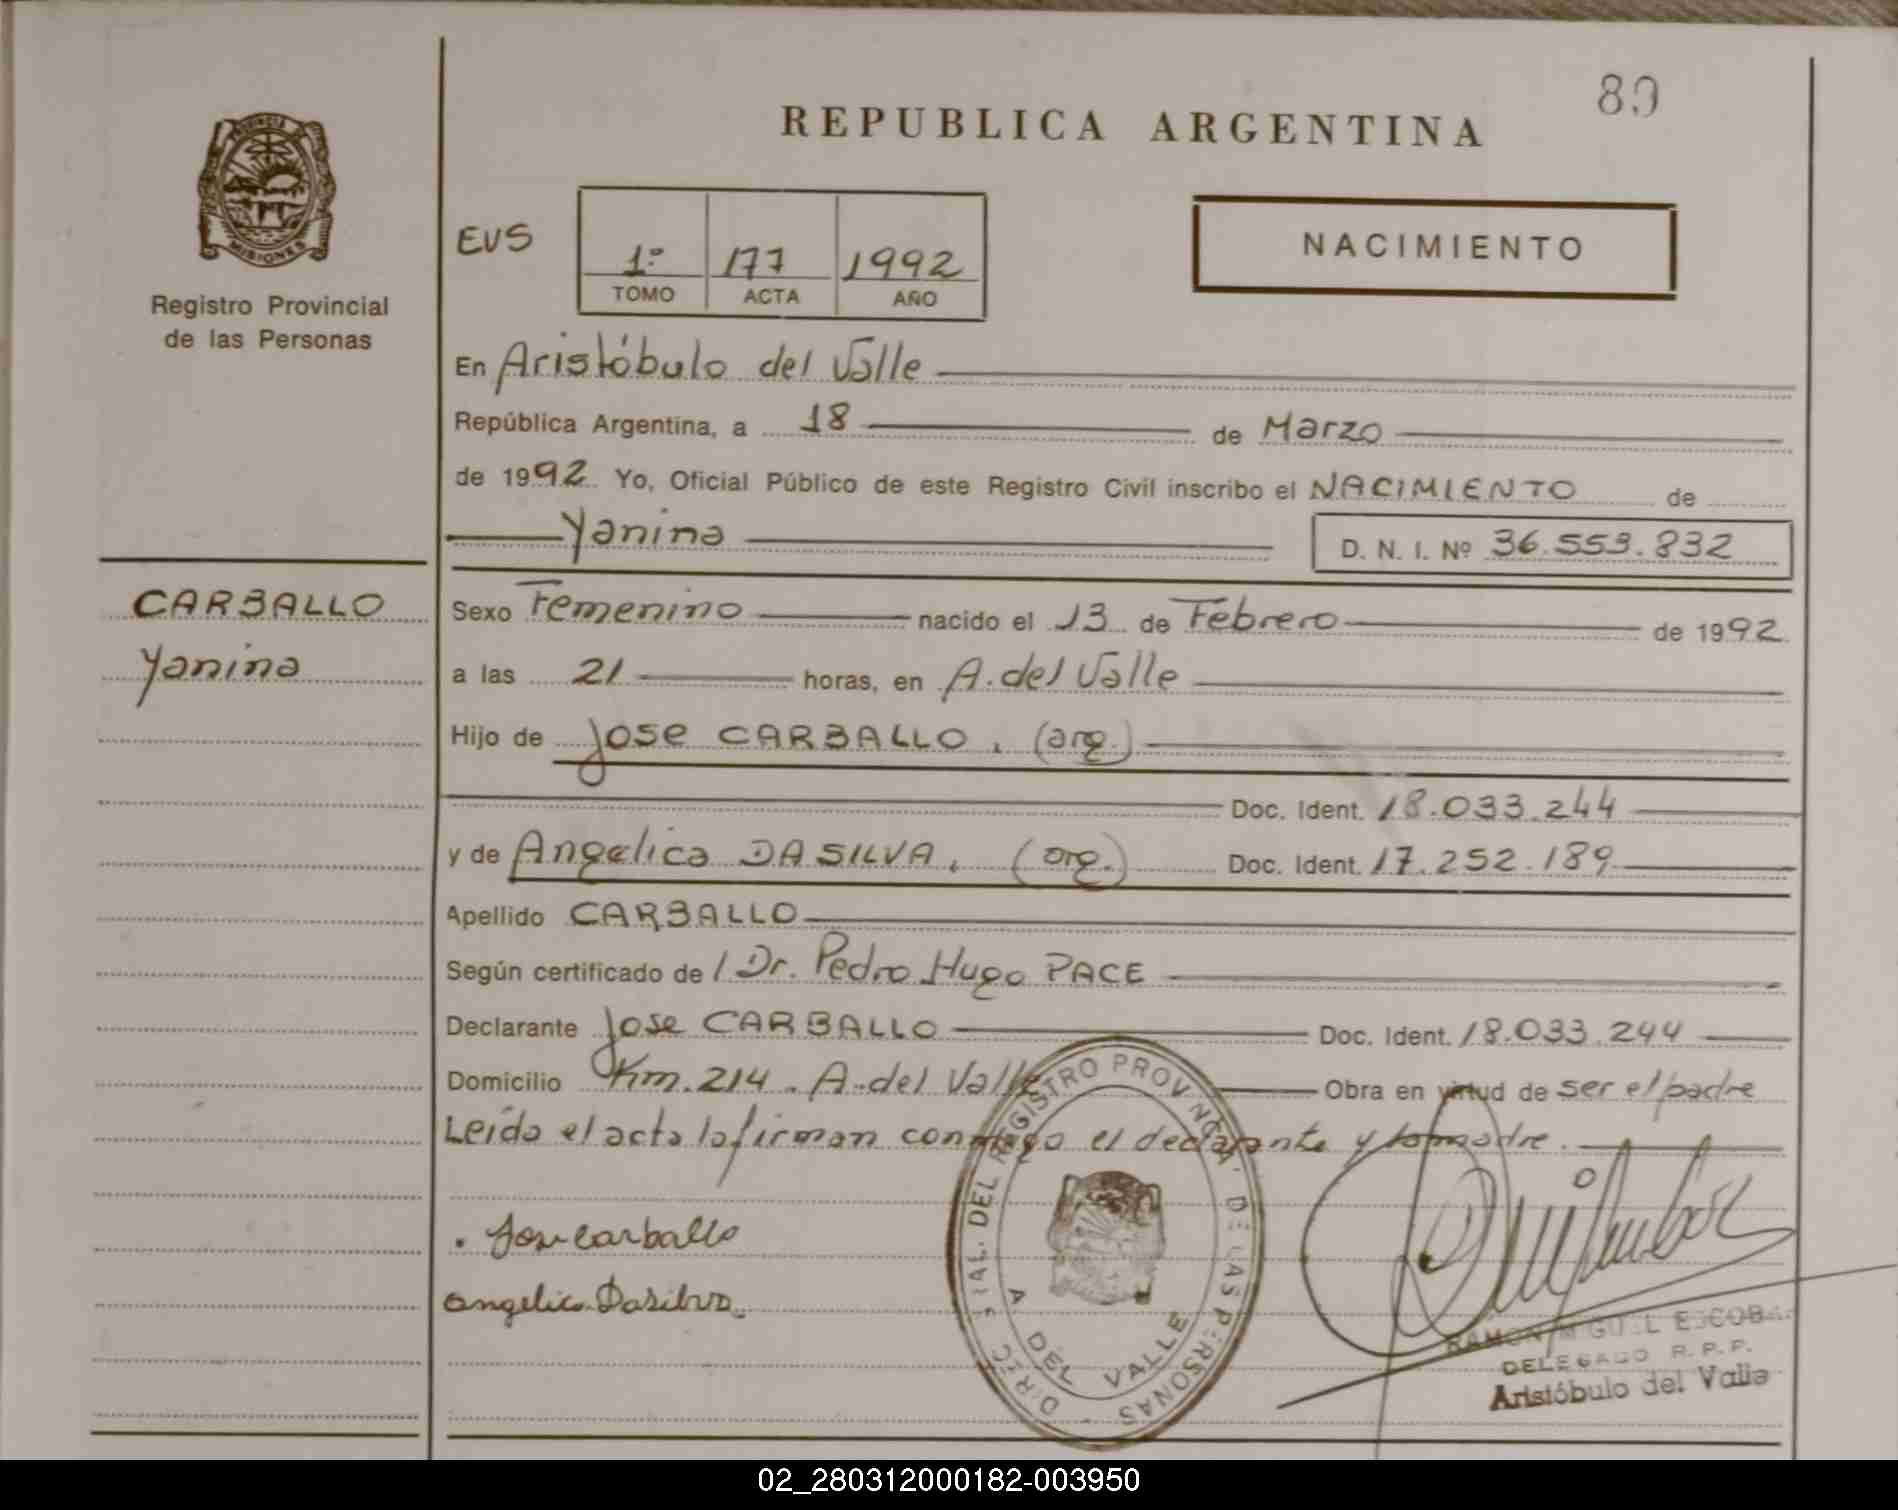 89
REPUBLICA ARGENTINA
PROVINCIA DE
MISIONES
Registro Provincial
de las Personas
EVS
1º 177 1992
TOMO ACTA AÑO
NACIMIENTO
En Aristóbulo del Valle
República Argentina, a 18 de Marzo
de 1992 Yo, Oficial Público de este Registro Civil inscribo el NACIMIENTO de
Yanina D. N. I. Nº 36.553.832
CARBALLO
Yanina
Sexo Femenino nacido el 13 de Febrero de 1992
a las 21 horas, en A. del Valle
Hijo de Jose CARBALLO, (arg.)
Doc. Ident. 18.033.244
y de Angelica DA SILVA, (arg.) Doc. Ident. 17.252.189
Apellido CARBALLO
Según certificado de / Dr. Pedro Hugo PACE
Declarante Jose CARBALLO Doc. Ident. 18.033.244
Domicilio Km. 214. A. del Valle Obra en virtud de ser el padre
Leída el acta la firman conmigo el declarante y la madre.
Jose Carballo
Angelica Dasilva
DIREC. PROVINCIAL DEL REGISTRO PROVINCIAL DE LAS PERSONAS
A DEL VALLE
RAMON MIGUEL ESCOBAR
DELEGADO R. P. P.
Aristóbulo del Valle
02_280312000182-003950